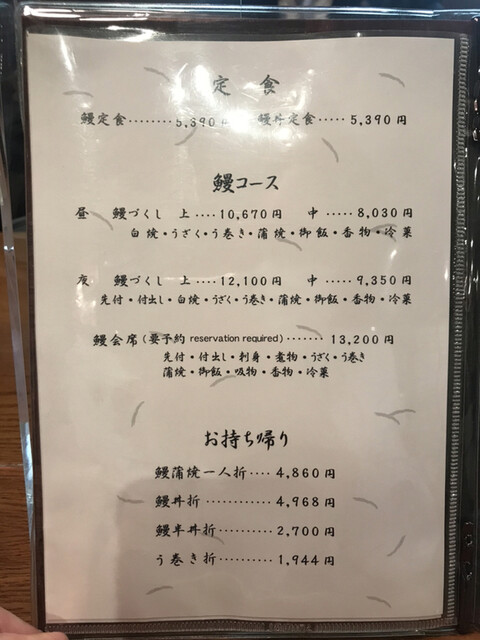 定食
鰻定食........5,390円 鰻丼定食.....5,390円
鰻コース
昼 鰻づくし 上....10,670円 中.....8,030円
白焼・うざく・う巻き・蒲焼・御飯・香物・冷菓
夜 鰻づくし 上....12,100円 中....9,350円
先付・付出し・白焼・うざく・う巻き・蒲焼・御飯・香物・冷菓
鰻会席(要予約 reservation required).......13,200円
先付・付出し・刺身・煮物・うざく・う巻き
蒲焼・御飯・吸物・香物・冷菓
お持ち帰り
鰻蒲焼一人折....4,860円
鰻丼折..........4,968円
鰻半丼折........2,700円
う巻き折..........1,944円